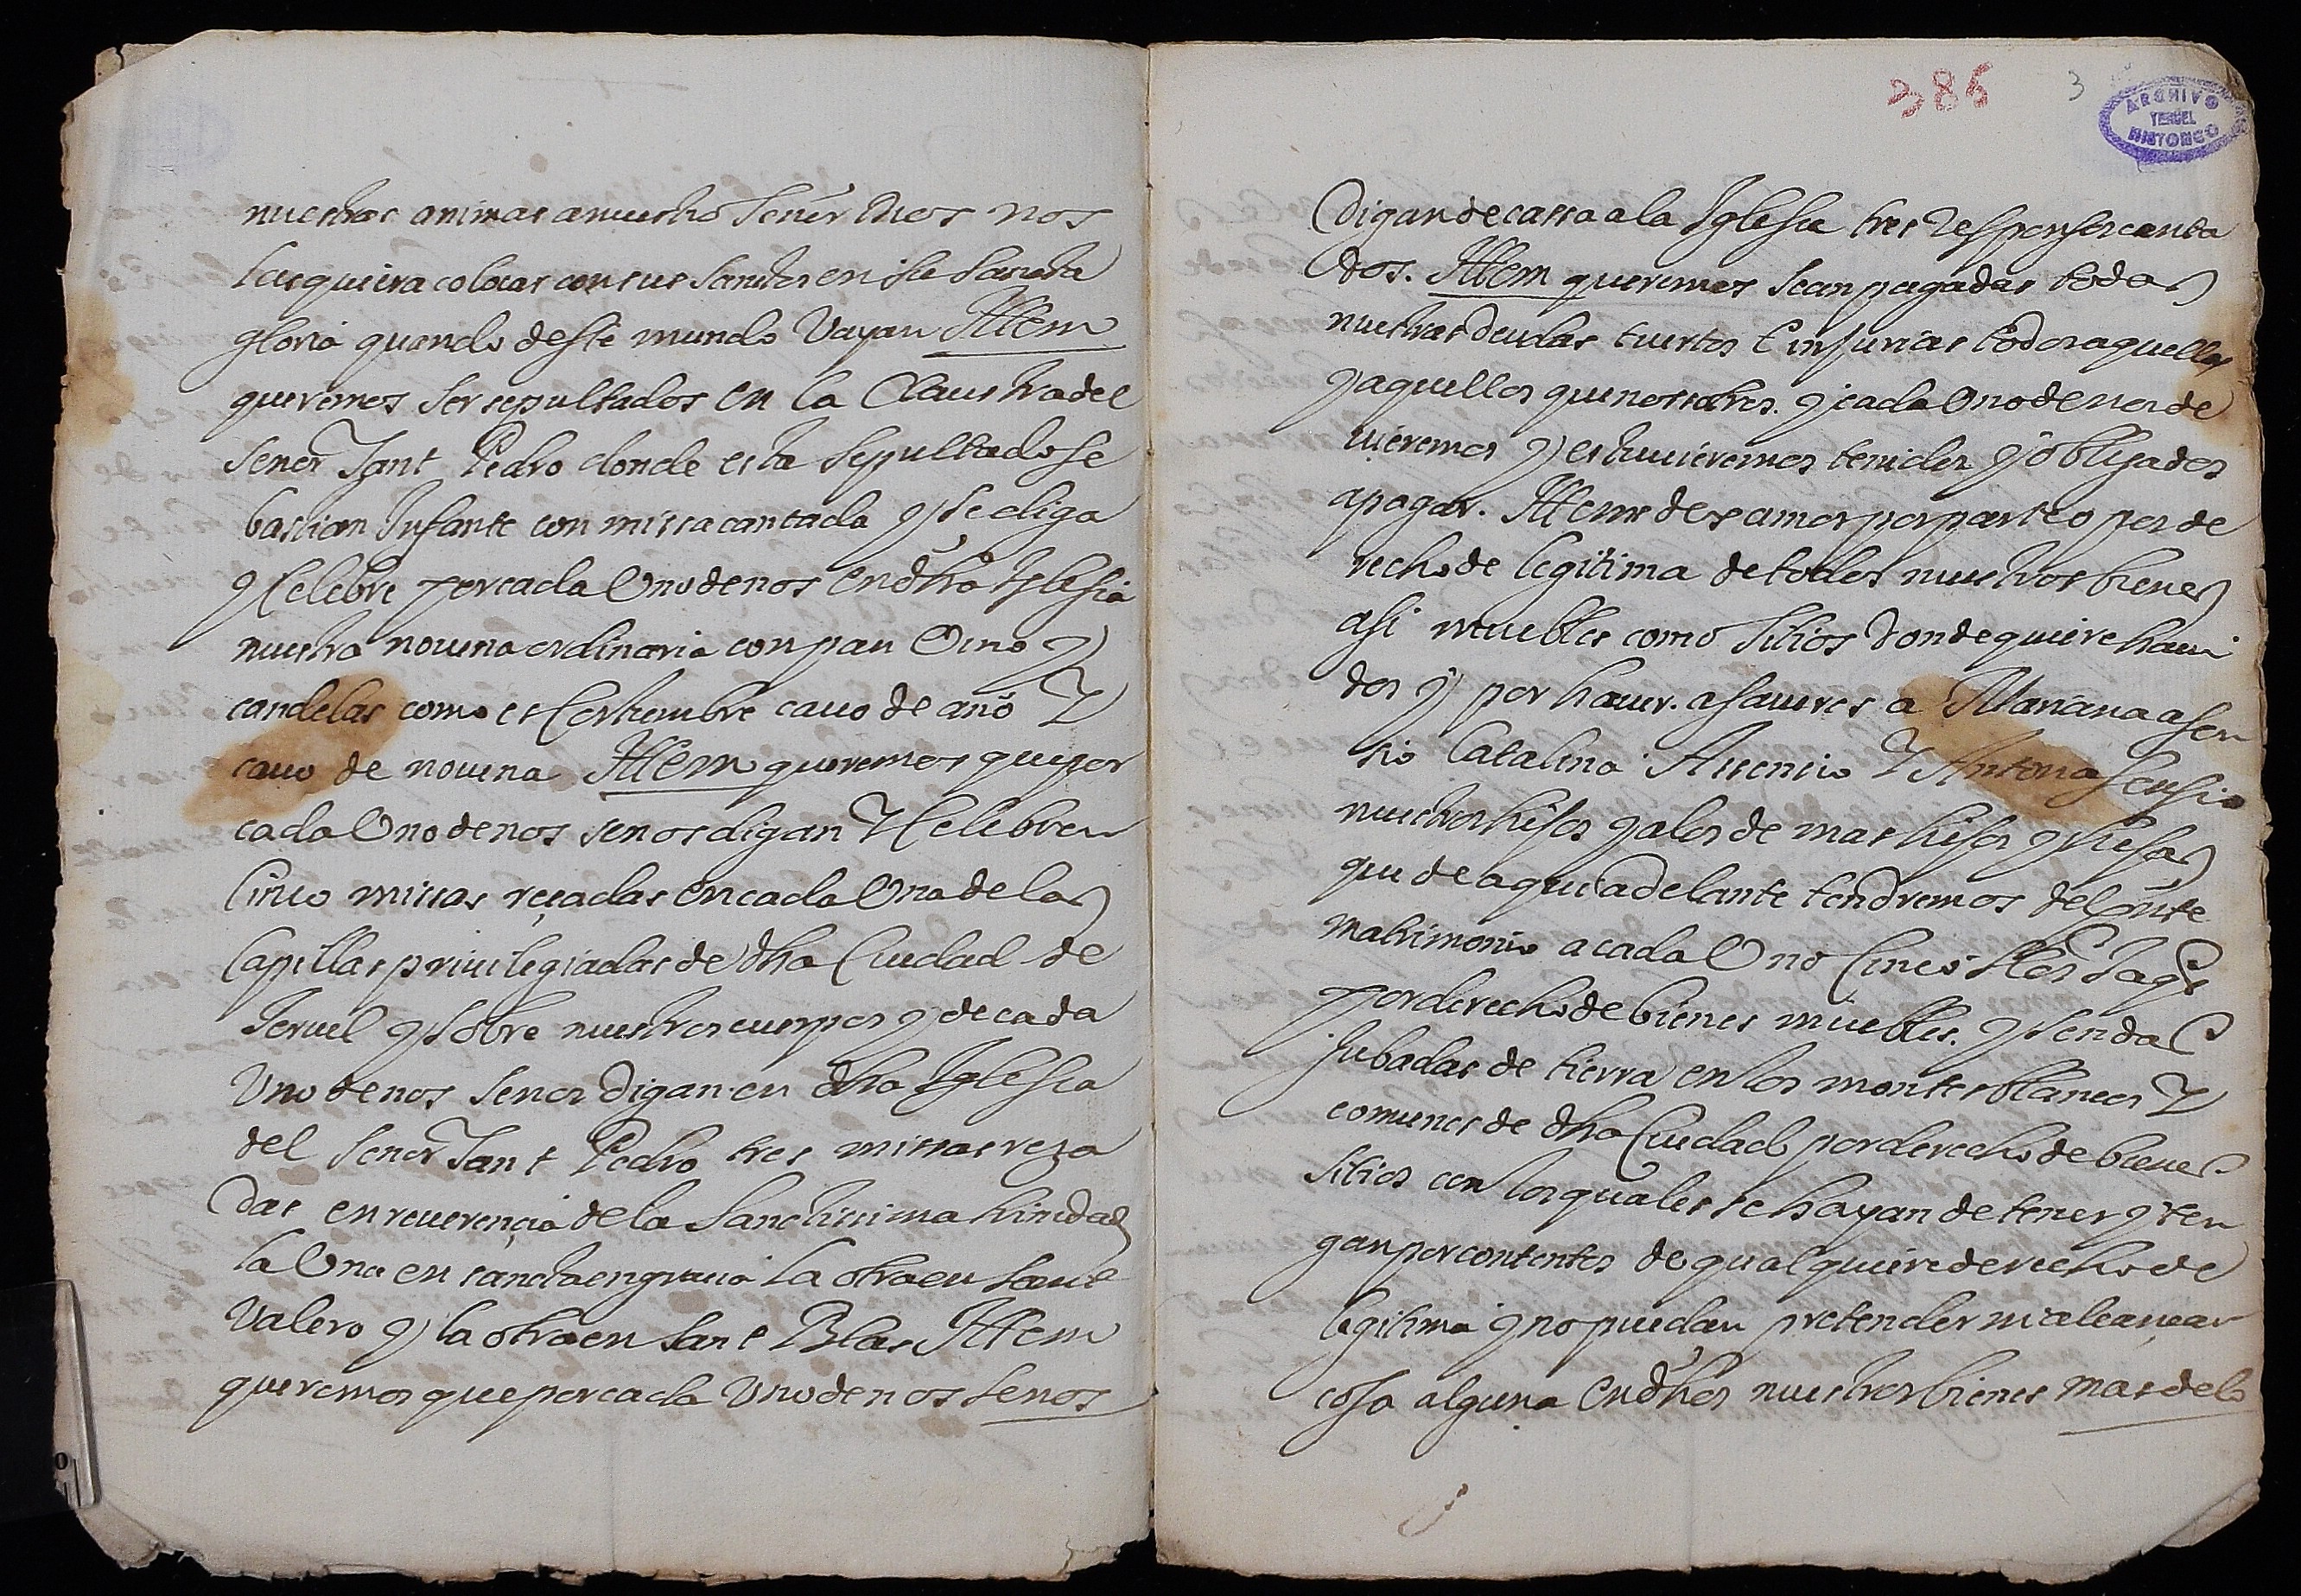 nuestras animas a nuestro Señor Dios nos
las quiera colocar con sus sanctos en su sancta
gloria quando deste mundo vayan Ittem
queremos ser sepultados en la Claustra del
Señor Sant Pedro donde esta sepultado Se
bastian Infante con missa cantada y se diga
y celebre por cada uno de nos en dha Iglesia
nuestra nouena ordinaria con pan vino y
candelas como es costumbre cauo de año y
cauo de nouena Ittem queremos que por
cada uno de nos se nos digan y celebren
Cinco missas reçadas en cada una de las
Capillas priuilegiadas de dha Ciudad de
Teruel y sobre nuestros cuerpos y de cada
uno de nos se nos digan en dha Iglesia
del Señor Sant Pedro tres missas reza
das en reuerençia de la Sanctissima trinidad
la una en sancta engracia la otra en sant
Valero y la otra en sant Blas Ittem
queremos que por cada uno de nos se nos
386 3
ARCHIVO
TERUEL
HISTORICO
Digan de cassa a la Iglesia tres Responsos canta
dos. Ittem queremos sean pagadas todas
nuestras deudas tuertos e injurias todos aquellas
y aquellos que nosotros. y cada uno de nos de
uieremos y estuuieremos tenidos y obligados
a pagar. Ittem dexamos por parte o por de
recho de legitima de todos nuestros bienes
asi muebles como sitios donde quiere haui
dos y por hauer. a saueres a Mariana asen
sio Catalina Assensio y Antona sensio
nuestros hijos y a los de mas hijos y hijas
que de aqui adelante tendremos del pnte
matrimonio a cada uno Cinco ss Jaqs
por derecho de bienes muebles. y sendas
jubadas de tierra en los montes blancos y
comunes de dha Ciudad por derecho de bienes
sitios con los quales se hayan de tener y ten
gan por contentos de qualquiere derecho de
legitima y no puedan pretender ni alcançar
cosa alguna en dhos nuestros bienes mas de lo